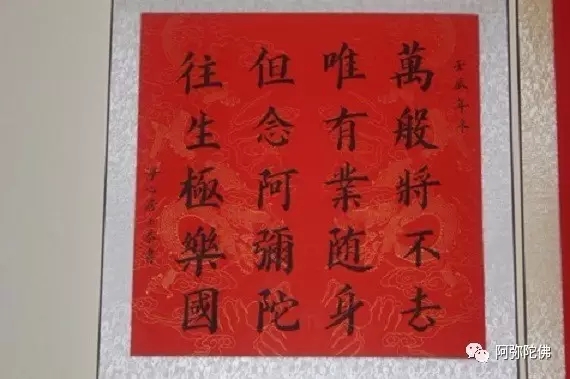 萬般將不去
唯有業随身
但念阿彌陀
往生極樂國
阿弥陀佛